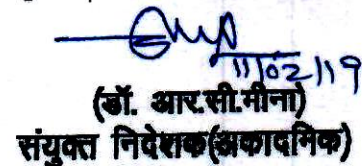 11/02/19
(डॉ. आर.सी.मीना)
संयुक्त निदेशक(अकादमिक)